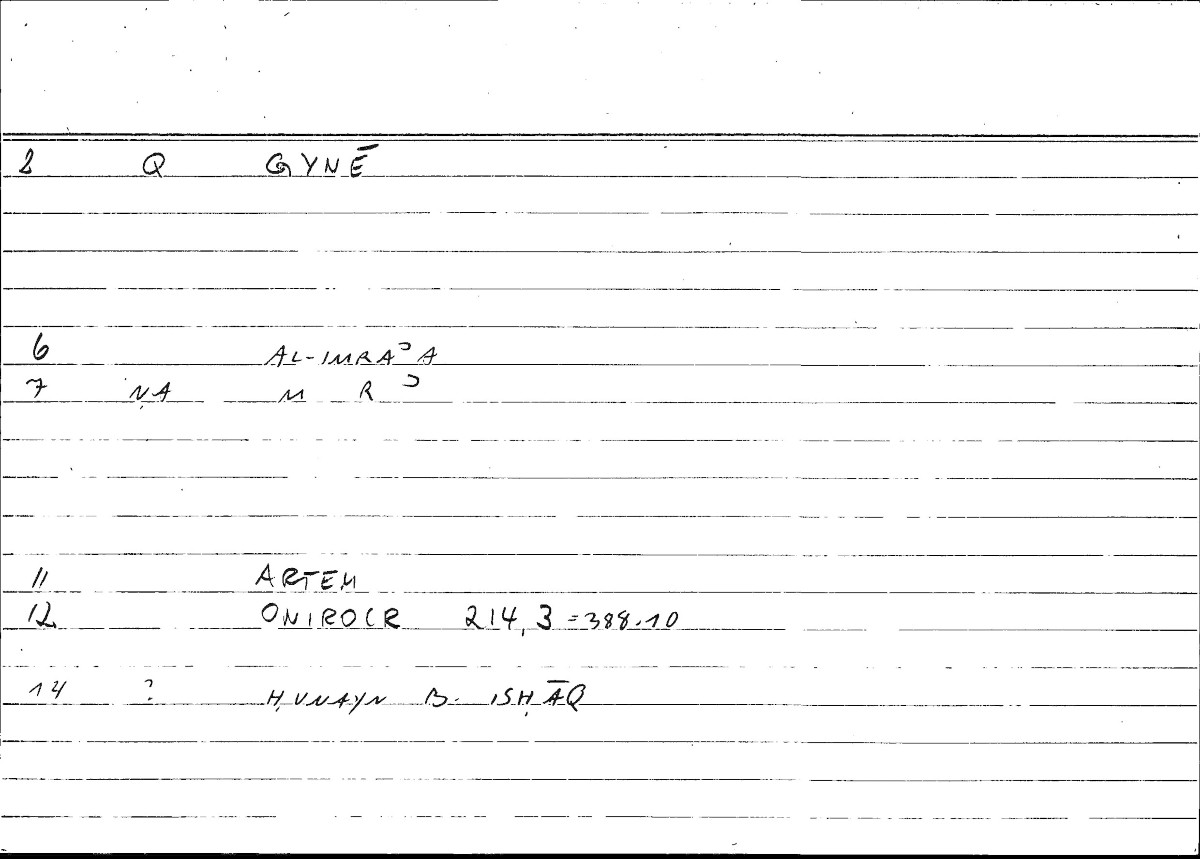 2 Q GYNĒ
6 AL-IMRAʾA
7 ṆA M R ʾ
11 ARTEM
12 ONIROCR 214,3=388.10
14 ? ḤUNAYN B. ISḤĀQ